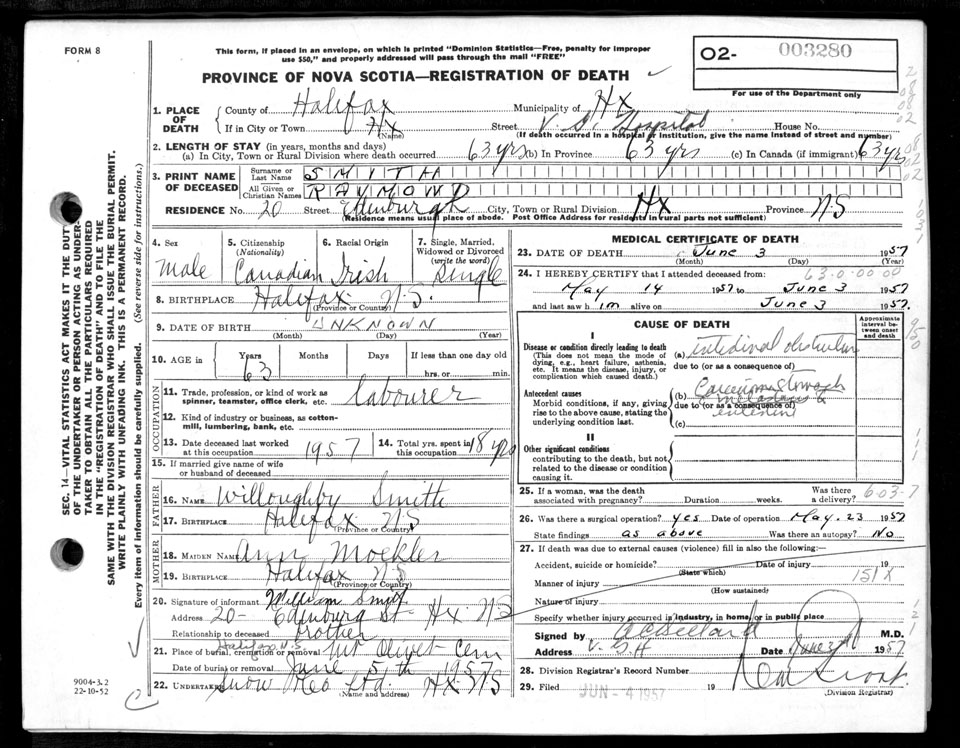 FORM 8
This form, if placed in an envelope, on which is printed "Dominion Statistics—Free, penalty for improper
use $50," and properly addressed will pass through the mail "FREE"
O2- 003280
PROVINCE OF NOVA SCOTIA—REGISTRATION OF DEATH
For use of the Department only
1. PLACE OF DEATH
County of Halifax Municipality of Hx
If in City or Town Hx Street V. G. Hospital House No.
(Name) (If death occurred in a hospital or institution, give the name instead of street and number)
2. LENGTH OF STAY (in years, months and days)
(a) In City, Town or Rural Division where death occurred 63 yrs (b) In Province 63 yrs (c) In Canada (if immigrant) 63 yrs
3. PRINT NAME OF DECEASED
Surname or Last Name SMITH
All Given or Christian Names RAYMOND
RESIDENCE No. 20 Street Edinburgh City, Town or Rural Division Hx Province NS
(Residence means usual place of abode. Post Office Address for residents in rural parts not sufficient)
4. Sex
Male
5. Citizenship
(Nationality)
Canadian
6. Racial Origin
Irish
7. Single, Married,
Widowed or Divorced
(write the word)
Single
8. BIRTHPLACE Halifax N.S.
(Province or Country)
9. DATE OF BIRTH UNKNOWN
(Month) (Day) (Year)
10. AGE in
Years Months Days If less than one day old
63 hrs. or min.
OCCUPATION
11. Trade, profession, or kind of work as
spinner, teamster, office clerk, etc. labourer
12. Kind of industry or business, as cotton-
mill, lumbering, bank, etc.
13. Date deceased last worked
at this occupation 1957
14. Total yrs. spent in
this occupation 18 yrs
15. If married give name of wife
or husband of deceased
FATHER
16. NAME Willoughby Smith
17. BIRTHPLACE Halifax NS
(Province or Country)
MOTHER
18. MAIDEN NAME Ann Mockler
19. BIRTHPLACE Halifax NS
(Province or Country)
20. Signature of informant William Smith
Address 20- Edinburg St Hx. NS
Relationship to deceased brother
Halifax N.S.
21. Place of burial, cremation or removal Mt Olivet Cem
Date of burial or removal June 5th 1957
22. UNDERTAKER Snow & Co Ltd. Hx. NS
(Name and address)
MEDICAL CERTIFICATE OF DEATH
23. DATE OF DEATH June 3 1957
(Month) (Day) (Year)
24. I HEREBY CERTIFY that I attended deceased from: 63.0.00.00
May 14 1957 to June 3 1957
and last saw him alive on June 3 1957.
CAUSE OF DEATH
Approximate
interval be-
tween onset
and death
I
Disease or condition directly leading to death
(This does not mean the mode of
dying, e.g., heart failure, asthenia,
etc. It means the disease, injury, or
complication which caused death.)
(a) intestinal obstruction
due to (or as a consequence of)
Antecedent causes
Morbid conditions, if any, giving
rise to the above cause, stating the
underlying condition last.
(b) Carcinoma Stomach
metastases to
due to (or as a consequence of)
intestine
(c)
II
Other significant conditions
contributing to the death, but not
related to the disease or condition
causing it.
25. If a woman, was the death
associated with pregnancy? Duration weeks. Was there
a delivery?
603-7
26. Was there a surgical operation? yes Date of operation May. 23 1957
State findings as above Was there an autopsy? No
27. If death was due to external causes (violence) fill in also the following:—
Accident, suicide or homicide? Date of injury 19
(State which)
151X
Manner of injury
(How sustained)
Nature of injury
Specify whether injury occurred in industry, in home, or in public place
Signed by M.D.
Address V. G. H Date June 1957
28. Division Registrar's Record Number
29. Filed JUN - 4 1957 19
(Division Registrar)
SEC. 14—VITAL STATISTICS ACT MAKES IT THE DUTY
OF THE UNDERTAKER OR PERSON ACTING AS UNDER-
TAKER TO OBTAIN ALL THE PARTICULARS REQUIRED
IN THE "REGISTRATION OF DEATH" AND TO FILE THE
SAME WITH THE DIVISION REGISTRAR WHO SHALL ISSUE THE BURIAL PERMIT.
WRITE PLAINLY WITH UNFADING INK. THIS IS A PERMANENT RECORD.
Every item of information should be carefully supplied. (See reverse side for instructions.)
9004-3.2
22-10-52